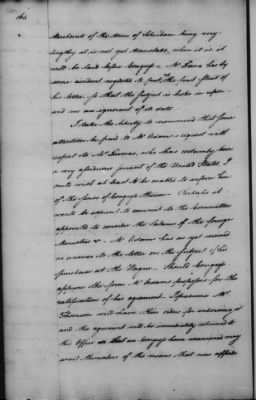 164
Merchants of the town of Schiedam being very
lengthy it is not yet translated, when it is it
will be laid before Congress – Mr Dana has by
some accident neglected to put the first sheet of
his letter, so that the subject is broke in upon
and we are ignorant of its date
I take the liberty to recommend that some
attention be paid to Mr Adams's request with
respect to Mr Dumas, who has certainly been
a very assiduous servant of the United States. I
could wish at least to be enabled to inform him
of the sense of Congress thereon. Perhaps it
would be expedient to commit to the Committee
appointed to consider the Salaries of the foreign
Ministers &c. Mr Adams has as yet received
no answer to the letter on the subject of his
purchase at the Hague. Should Congress
approve the form Mr Adams proposes for the
ratification of his agreement I presume Mr
Thomson will have their order for endorsing it
and the agreement will be immediately returned to
this Office so that as Congress have examined may
avail themselves of the means that now offer